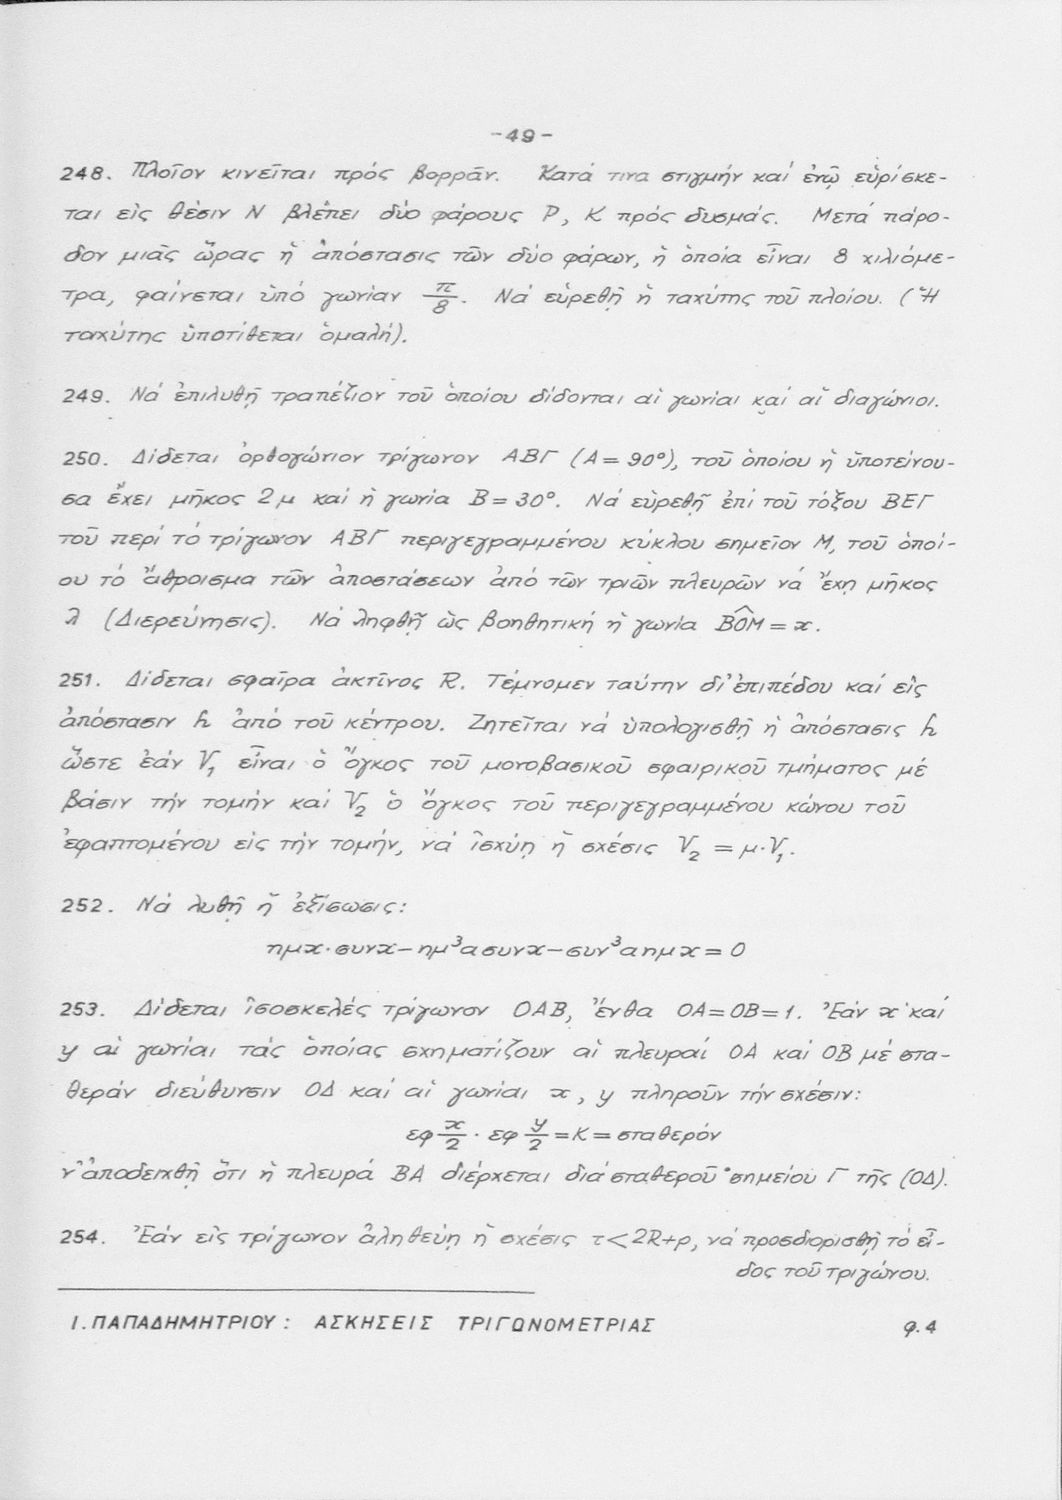 -49-
248. Πλοῖον κινεῖται πρός βορρᾶν. Κατά τινα στιγμήν καί ἐνῷ εὑρίσκε-
ται εἰς θέσιν Ν βλέπει δύο φάρους Ρ, Κ πρός δυσμάς. Μετά πάρο-
δον μιᾶς ὥρας ἡ ἀπόστασις τῶν δύο φάρων, ἡ ὁποία εἶναι 8 χιλιόμε-
τρα, φαίνεται ὑπό γωνίαν π/8. Νά εὑρεθῇ ἡ ταχύτης τοῦ πλοίου. (Ἡ
ταχύτης ὑποτίθεται ὁμαλή).
249. Νά ἐπιλυθῇ τραπέζιον τοῦ ὁποίου δίδονται αἱ γωνίαι καί αἱ διαγώνιοι.
250. Δίδεται ὀρθογώνιον τρίγωνον ΑΒΓ (Α = 90°), τοῦ ὁποίου ἡ ὑποτείνου-
σα ἔχει μῆκος 2μ καί ἡ γωνία Β = 30°. Νά εὑρεθῇ ἐπί τοῦ τόξου ΒΕΓ
τοῦ περί τό τρίγωνον ΑΒΓ περιγεγραμμένου κύκλου σημεῖον Μ, τοῦ ὁποί-
ου τό ἄθροισμα τῶν ἀποστάσεων ἀπό τῶν τριῶν πλευρῶν νά ἔχη μῆκος
λ (Διερεύνησις). Νά ληφθῇ ὡς βοηθητική ἡ γωνία ΒΟ̂Μ = x.
251. Δίδεται σφαῖρα ἀκτῖνος R. Τέμνομεν ταύτην δι' ἐπιπέδου καί εἰς
ἀπόστασιν h ἀπό τοῦ κέντρου. Ζητεῖται νά ὑπολογισθῇ ἡ ἀπόστασις h
ὥστε ἐάν V₁ εἶναι ὁ ὄγκος τοῦ μονοβασικοῦ σφαιρικοῦ τμήματος μέ
βάσιν τήν τομήν καί V₂ ὁ ὄγκος τοῦ περιγεγραμμένου κώνου τοῦ
ἐφαπτομένου εἰς τήν τομήν, νά ἰσχύῃ ἡ σχέσις V₂ = μ·V₁.
252. Νά λυθῇ ἡ ἐξίσωσις:
ημx·συνx – ημ³α συνx – συν³α ημx = 0
253. Δίδεται ἰσοσκελές τρίγωνον ΟΑΒ, ἔνθα ΟΑ = ΟΒ = 1. Ἐάν x καί
y αἱ γωνίαι τάς ὁποίας σχηματίζουν αἱ πλευραί ΟΑ καί ΟΒ μέ στα-
θεράν διεύθυνσιν ΟΔ καί αἱ γωνίαι x, y πληροῦν τήν σχέσιν:
εφ x/2 · εφ y/2 = Κ = σταθερόν
ν' ἀποδειχθῇ ὅτι ἡ πλευρά ΒΑ διέρχεται διά σταθεροῦ σημείου Γ τῆς (ΟΔ).
254. Ἐάν εἰς τρίγωνον ἀληθεύῃ ἡ σχέσις τ < 2R+ρ, νά προσδιορισθῇ τό εἶ-
δος τοῦ τριγώνου.
Ι. ΠΑΠΑΔΗΜΗΤΡΙΟΥ : ΑΣΚΗΣΕΙΣ ΤΡΙΓΩΝΟΜΕΤΡΙΑΣ φ. 4